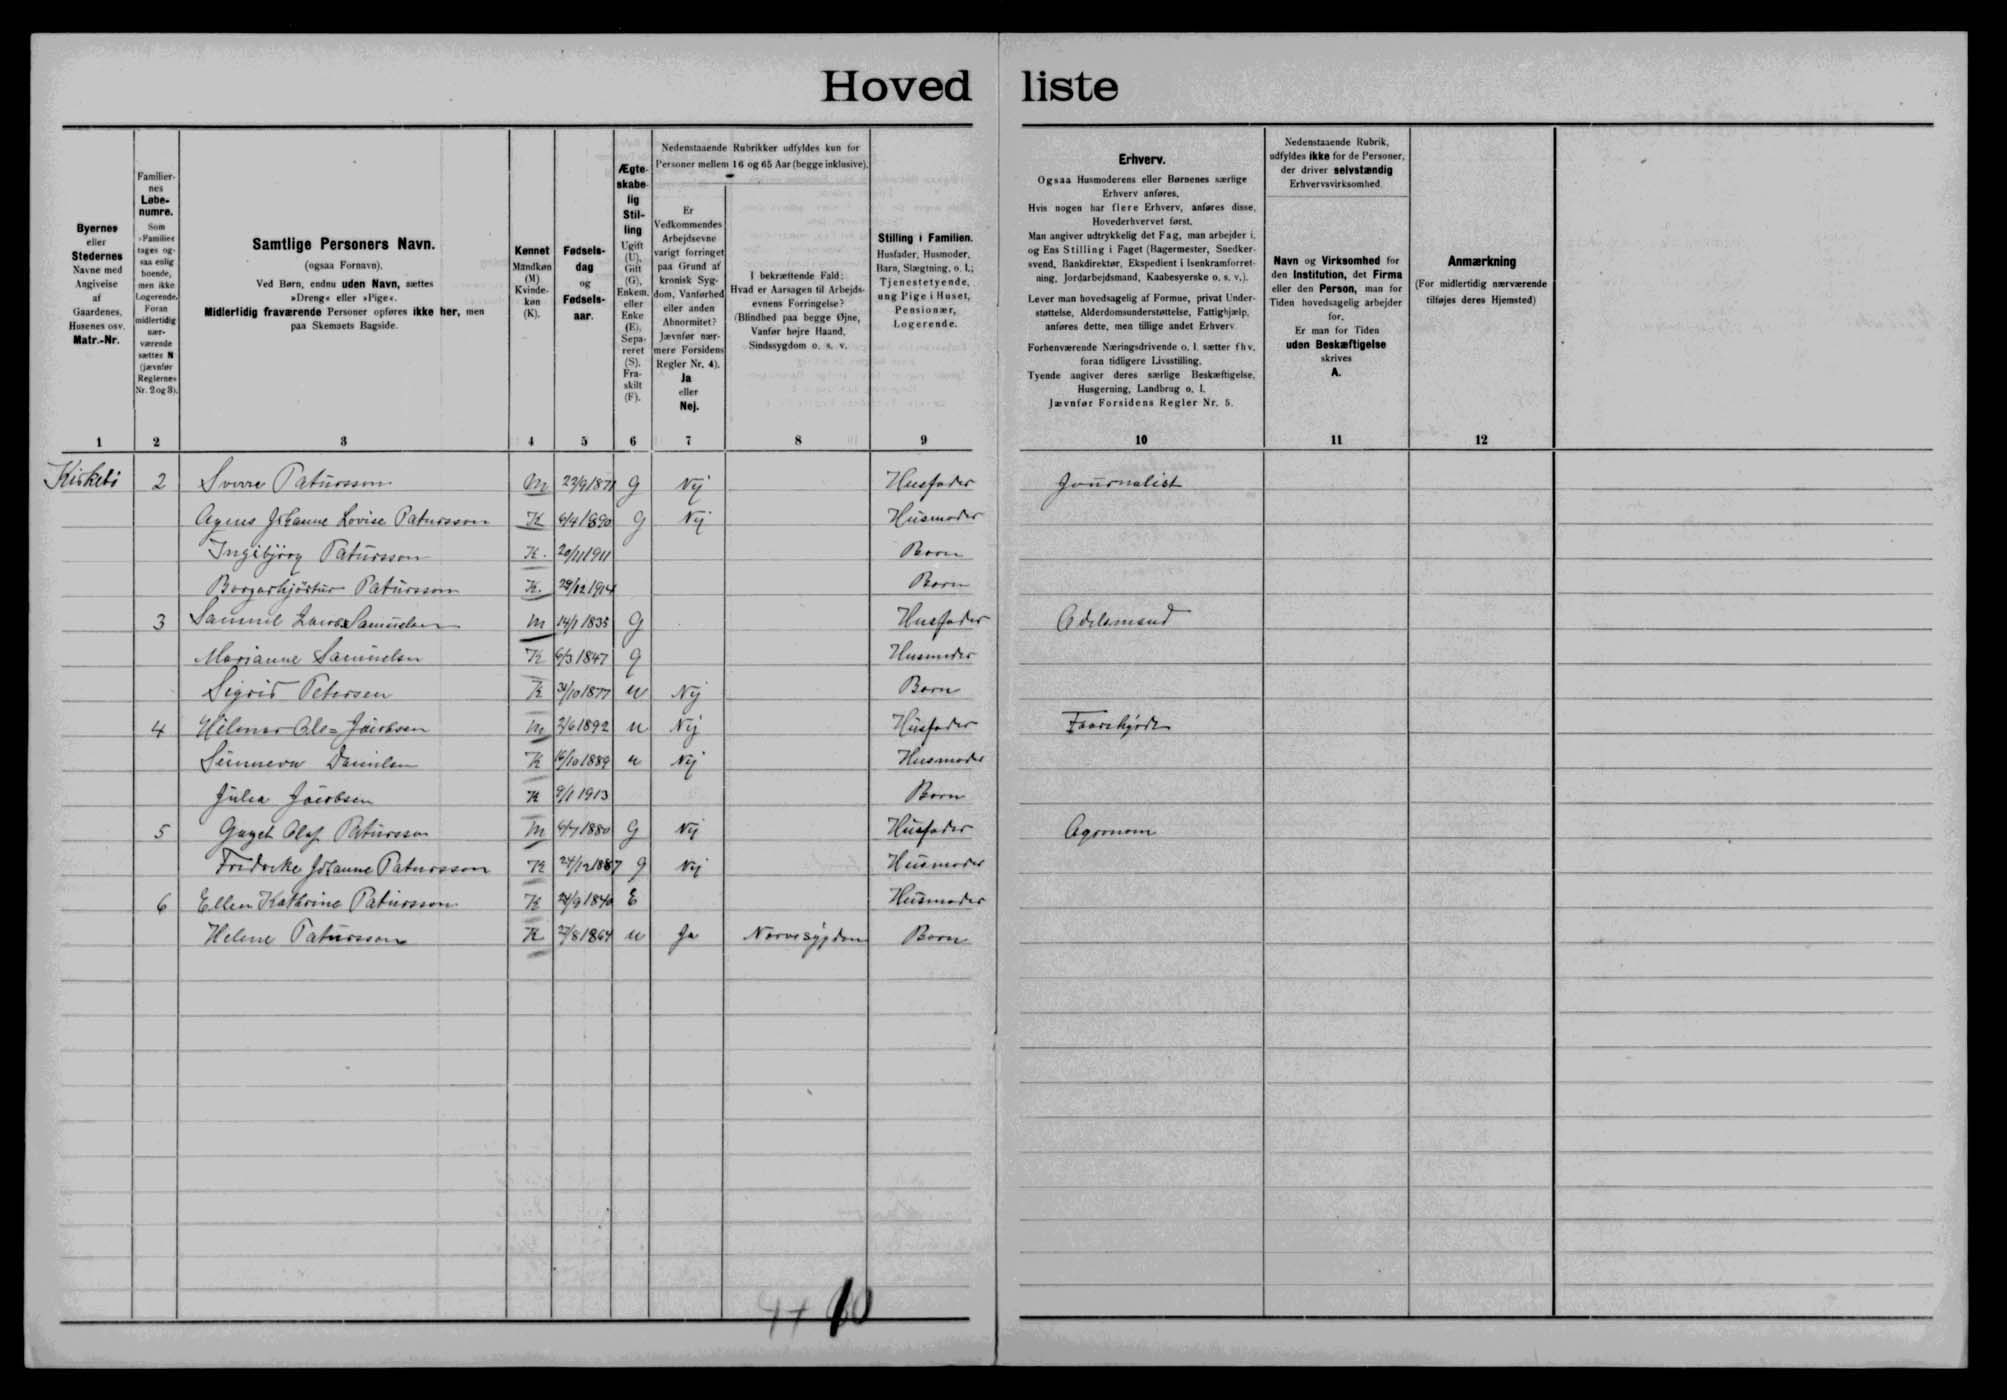 Hovedliste
Byernes eller Stedernes Navne med Angivelse af Gaardenes, Husenes osv. Matr.-Nr.
Familiernes Løbenumre. Som »Familie« tages ogsaa enlig boende, men ikke Logerende. Foran midlertidig nærværende sættes N (jævnfør Reglernes Nr. 2 og 3).
Samtlige Personers Navn.
(ogsaa Fornavn).
Ved Børn, endnu uden Navn, sættes »Dreng« eller »Pige«.
Midlertidig fraværende Personer opføres ikke her, men paa Skemaets Bagside.
Kønnet Mandkøn (M) Kvindekøn (K).
Fødselsdag og Fødselsaar.
Ægteskabelig Stilling Ugift (U), Gift (G), Enkem. eller Enke (E), Separeret (S), Fraskilt (F).
Nedenstaaende Rubrikker udfyldes kun for Personer mellem 16 og 65 Aar (begge inklusive).
Er Vedkommendes Arbejdsevne varigt forringet paa Grund af kronisk Sygdom, Vanførhed eller anden Abnormitet? Jævnfør nærmere Forsidens Regler Nr. 4). Ja eller Nej.
I bekræftende Fald: Hvad er Aarsagen til Arbejdsevnens Forringelse? (Blindhed paa begge Øjne, Vanfør højre Haand, Sindssygdom o. s. v.
Stilling i Familien. Husfader, Husmoder, Barn, Slægtning, o. l.; Tjenestetyende, ung Pige i Huset, Pensionær, Logerende.
Erhverv.
Ogsaa Husmoderens eller Børnenes særlige Erhverv anføres.
Hvis nogen har flere Erhverv, anføres disse, Hovederhvervet først.
Man angiver udtrykkelig det Fag, man arbejder i, og Ens Stilling i Faget (Bagermester, Snedkersvend, Bankdirektør, Ekspedient i Isenkramforretning, Jordarbejdsmand, Kaabesyerske o. s. v.).
Lever man hovedsagelig af Formue, privat Understøttelse, Alderdomsunderstøttelse, Fattighjælp, anføres dette, men tillige andet Erhverv.
Forhenværende Næringsdrivende o. l. sætter fhv. foran tidligere Livsstilling.
Tyende angiver deres særlige Beskæftigelse, Husgerning, Landbrug o. l.
Jævnfør Forsidens Regler Nr. 5.
Nedenstaaende Rubrik, udfyldes ikke for de Personer, der driver selvstændig Erhvervsvirksomhed.
Navn og Virksomhed for den Institution, det Firma eller den Person, man for Tiden hovedsagelig arbejder for.
Er man for Tiden uden Beskæftigelse skrives A.
Anmærkning
(For midlertidig nærværende tilføjes deres Hjemsted)
1 2 3 4 5 6 7 8 9 10 11 12
Kirkebö 2 Sverre Patursson M 23/9 1871 G Nej Husfader Journalist
Agnes Johanne Lovise Patursson K 6/4 1890 G Nej Husmoder
Ingibjörg Patursson K. 20/11 1911 Barn
Borgarhjörtur Patursson K. 29/12 1914 Barn
3 Samuel Samuelsen M 14/1 1835 G Husfader Adelsmand
Marianne Samuelsen K 6/3 1847 G Husmoder
Sigrid Petersen K 31/10 1877 u Nej Barn
4 Hilmar Ole Jacobsen M 2/6 1892 u Nej Husfader Faarehyrde
Sunneva K 16/10 1889 u Nej Husmoder
Julia Jacobsen K 9/1 1913 Barn
5 Olaf Patursson M 6/7 1880 G Nej Husfader Agronom
Johanne Patursson K 24/12 1887 G Nej Husmoder
6 Ellen Kathrine Patursson K 24/9 1840 E Husmoder
Helene Patursson K 27/8 1864 u Ja Nervesygdom Barn
4+ 10